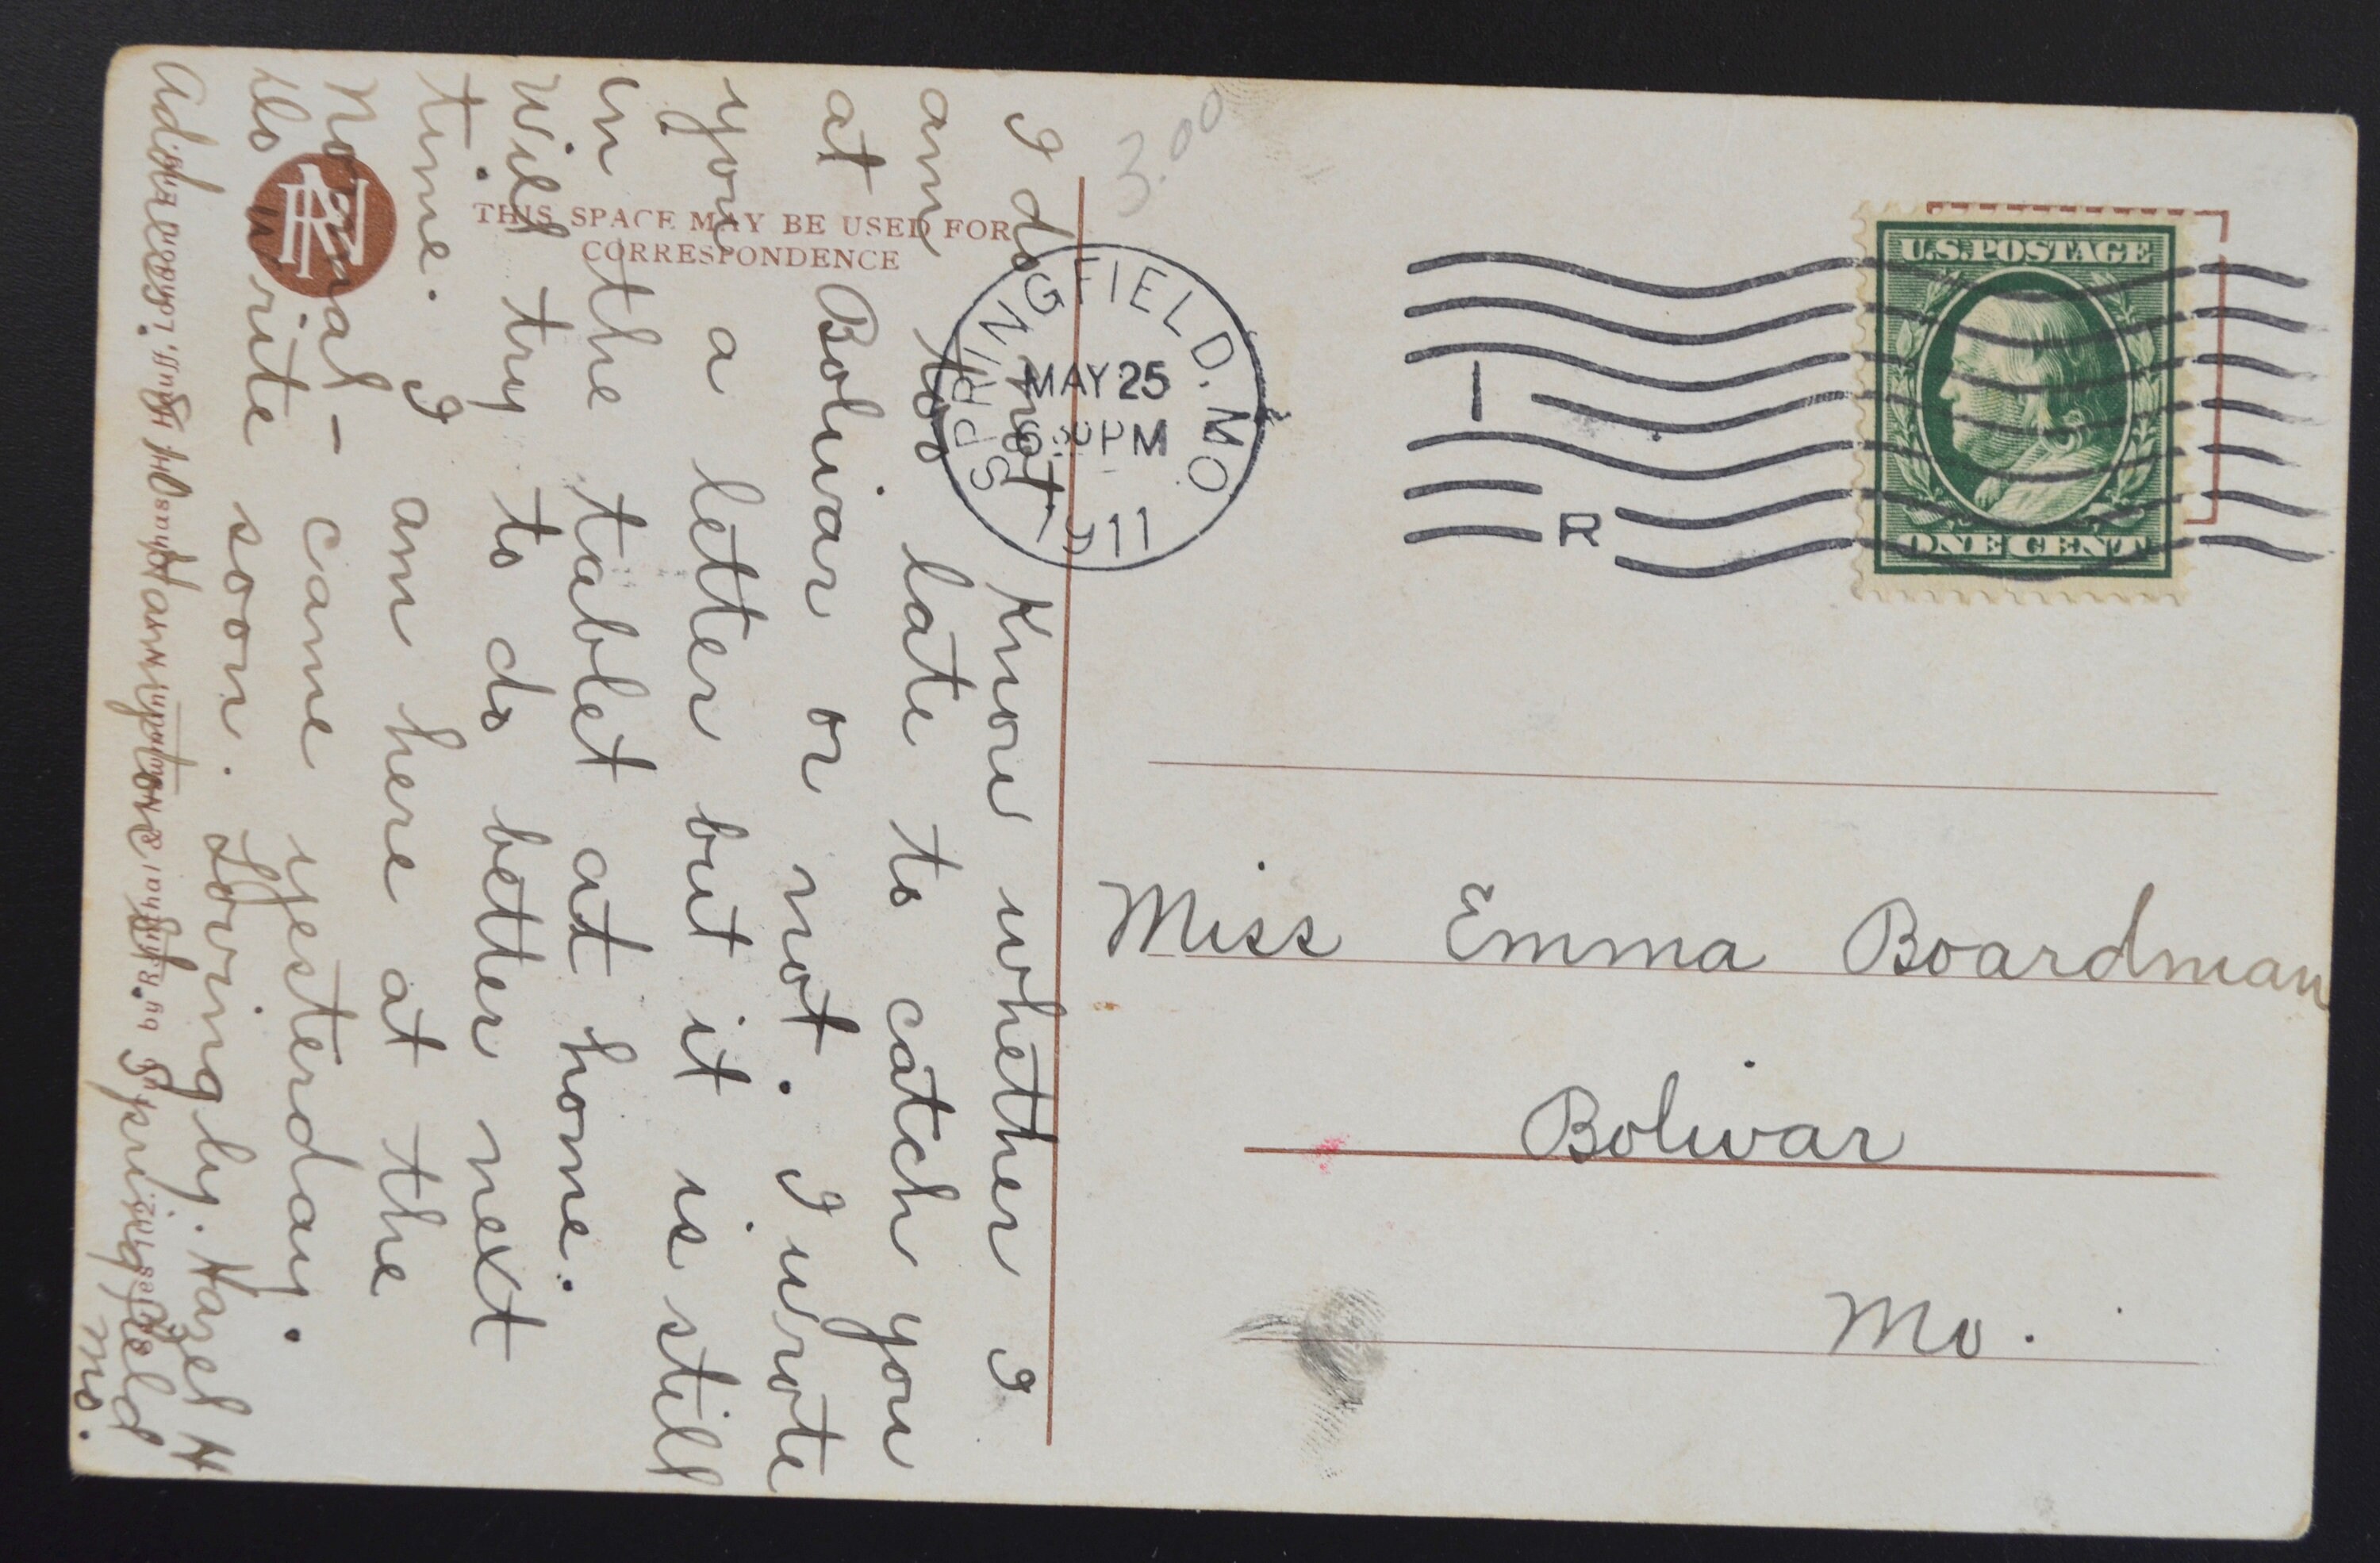 I do not know whether I
am too late to catch you
at Bolivar or not. I wrote
you a letter but it is still
in the tablet at home.
Will try to do better next
time. I am here at the
Normal - came yesterday.
Do write soon. Lovingly. Hazel H
Address.
Springfield
Mo.
THIS SPACE MAY BE USED FOR
CORRESPONDENCE
3.00
SPRINGFIELD. MO
MAY 25
PM
1911
1
R
U.S. POSTAGE
ONE CENT
Miss Emma Boardman
Bolivar
Mo.